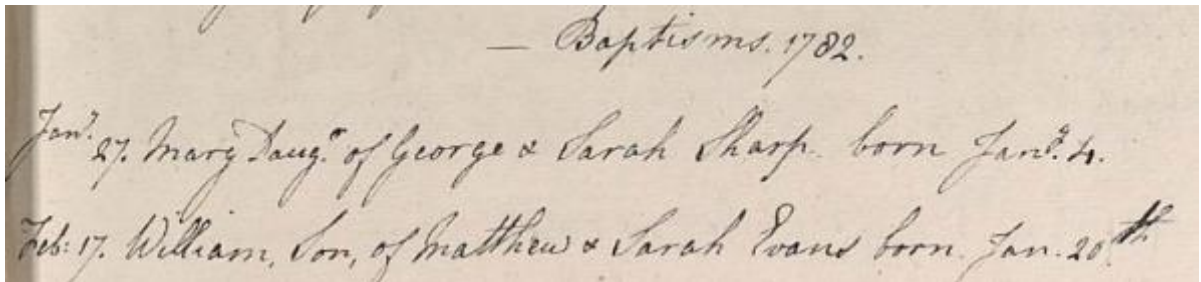 — Baptisms. 1782.
Jan.y 27. Mary Daug.r of George & Sarah Sharp. born Jan.y 4.
Feb: 17. William, Son, of Matthew & Sarah Evans born Jan. 20th